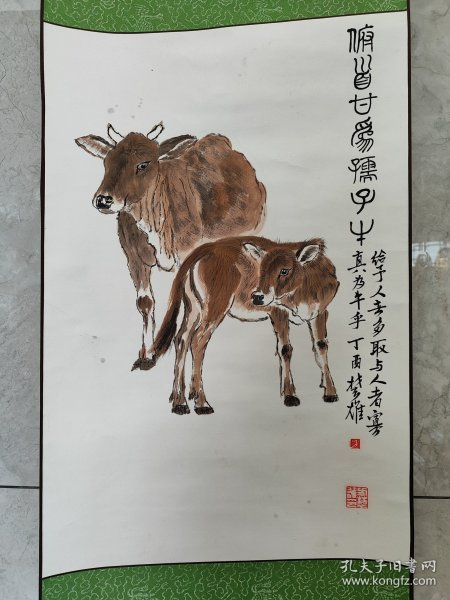 俯首甘为孺子牛
给予人者多取与人者寡
真为牛乎丁酉楚雄
孔夫子旧书网
www.kongfz.com